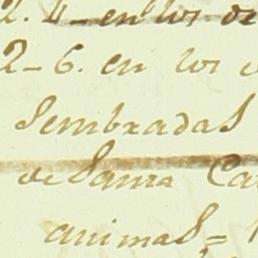 2. 4 - en los de
2 - 6. en los
Sembradas
de Santa Ca
animas =